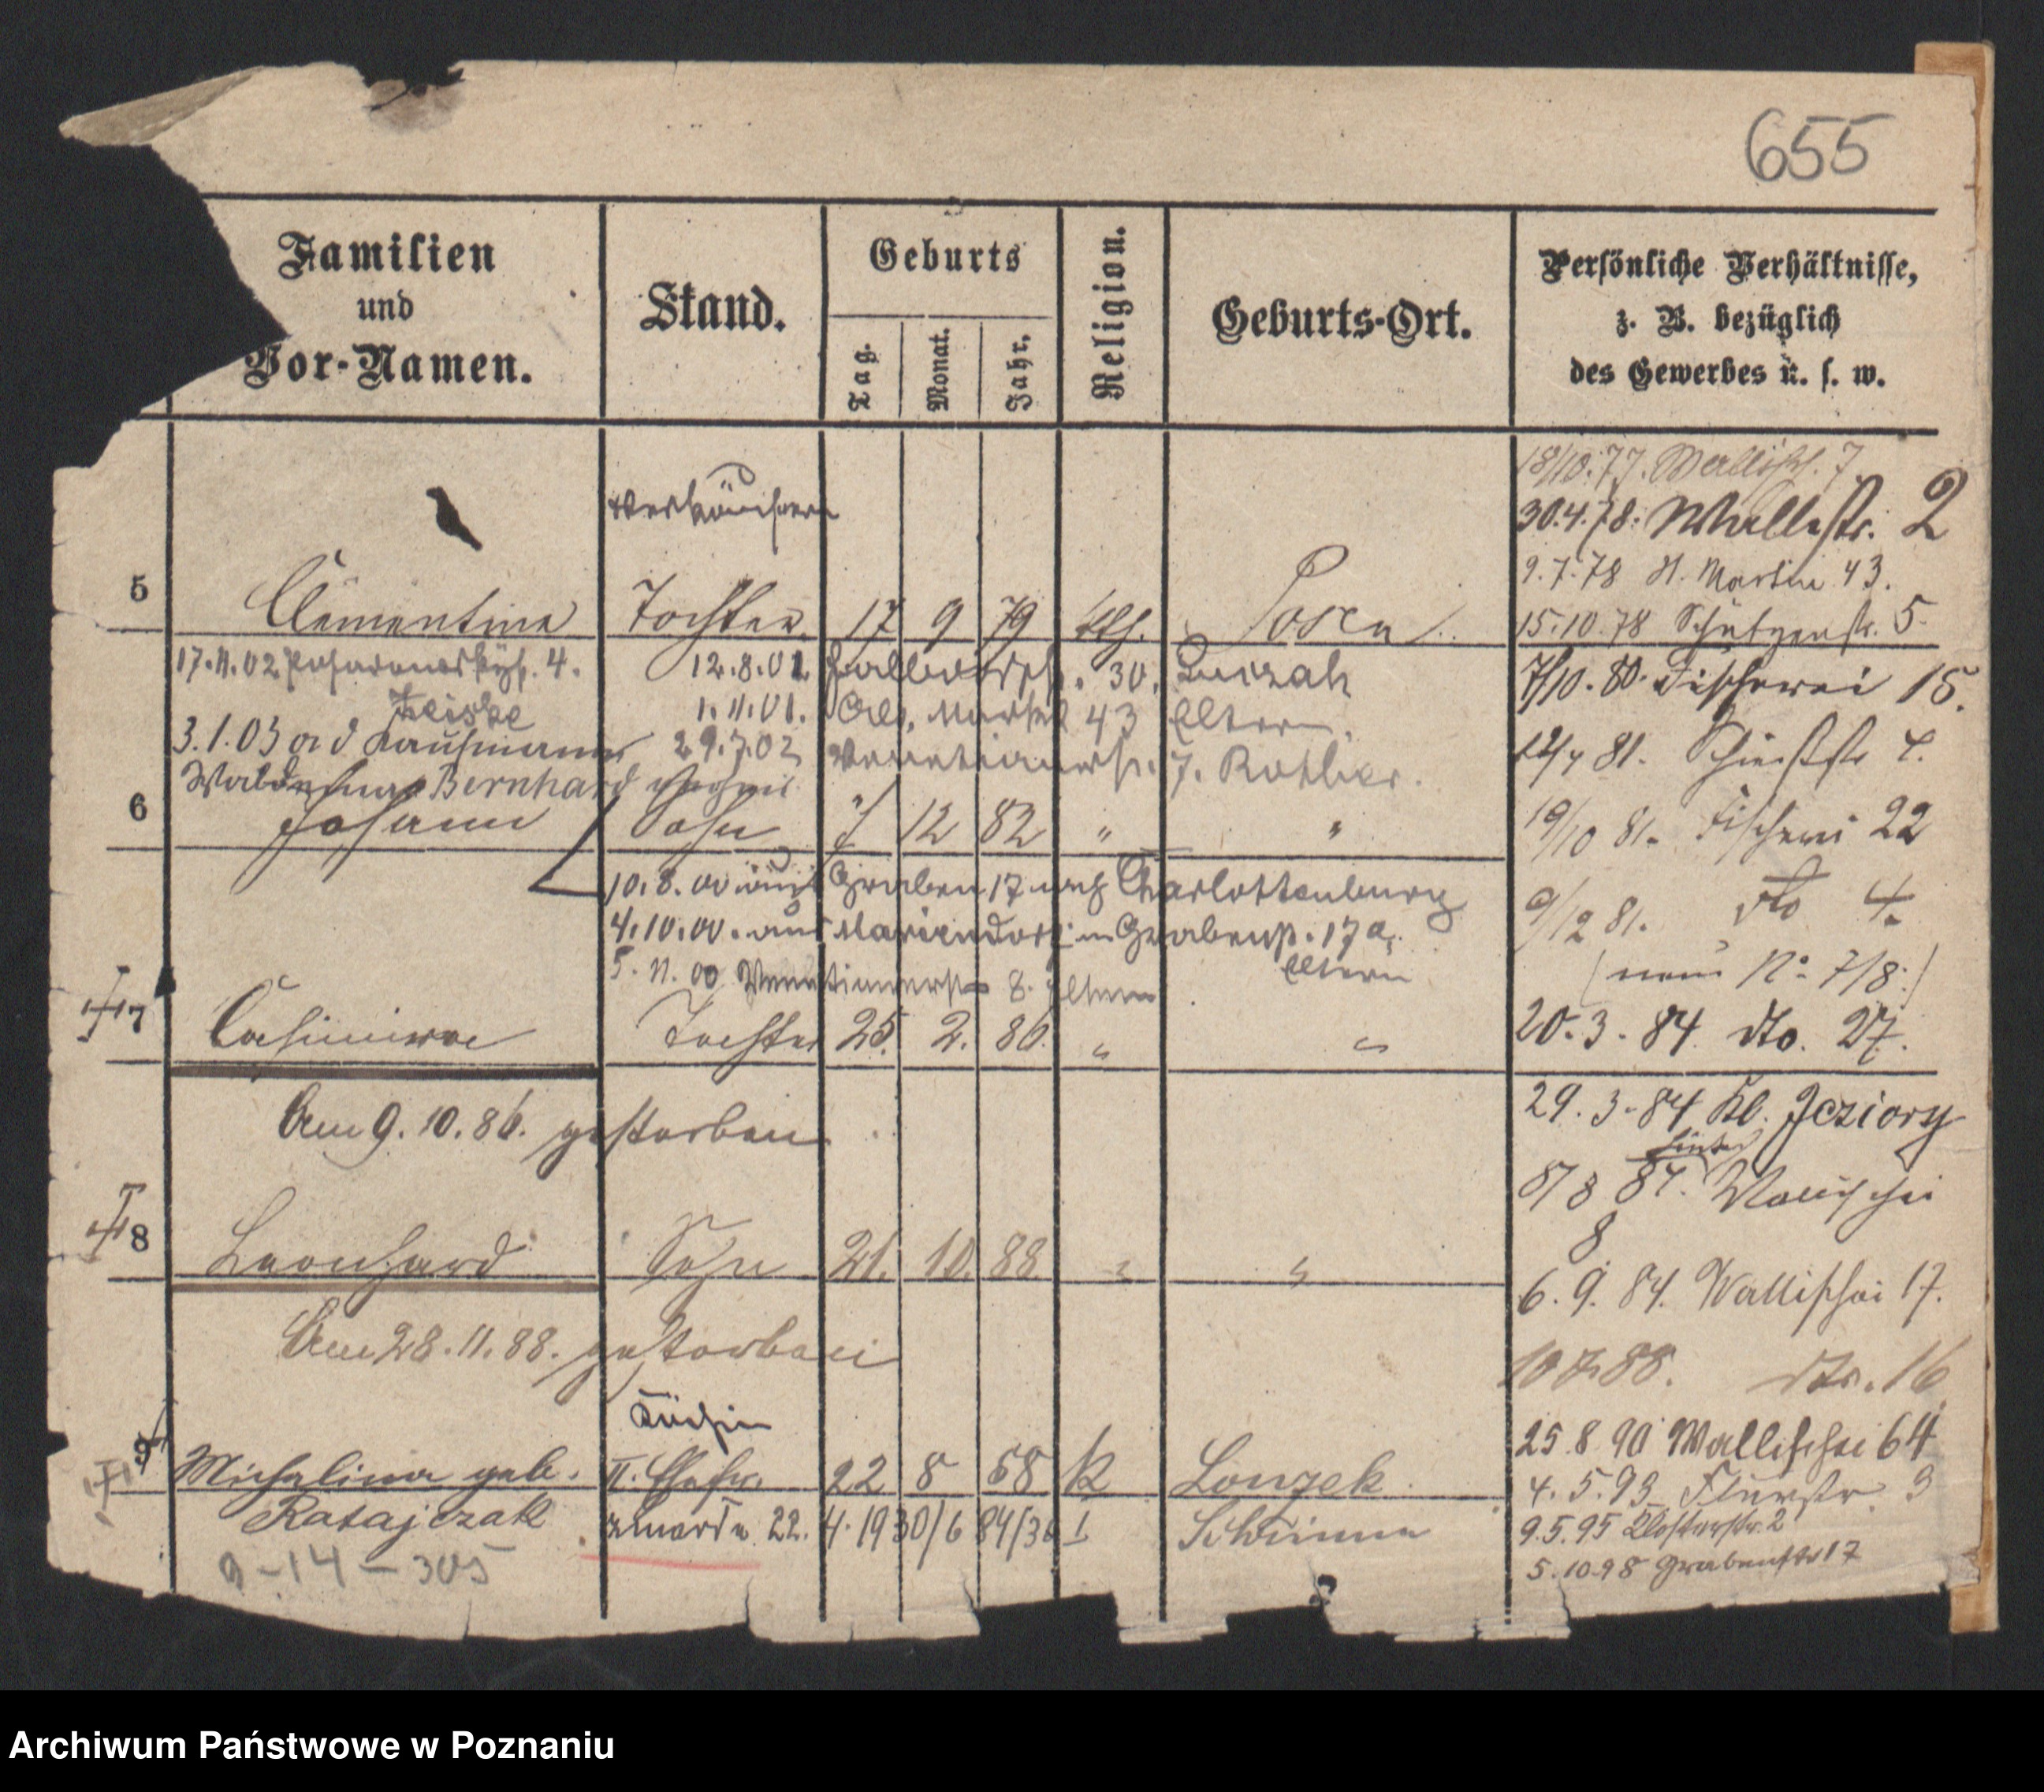 655
Familien
und
Vor-Namen.
Stand.
Geburts
Tag.
Monat.
Jahr.
Religion.
Geburts-Ort.
Persönliche Verhältnisse,
z. B. bezüglich
des Gewerbes u. s. w.
18/10.77. Wallisch. 7
30.4.78. Wallstr. 2
9.7.78 St. Martin 43.
15.10.78 Schützenstr. 5.
7/10.80. Fischerei 15.
81. Schiessstr 4.
19/10 81. Fischerei 22
9/12 81. dto 4.
(neue No 7/8.)
20.3.84. dto. 27.
29.3.84 Kl. Jeziory
8/8 84. Wallischei
8
6.9.84. Wallischei 17.
dto. 16
25.8.90 Wallischei 64
4.5.93 Flurstr. 3
9.5.95 Klosterstr. 2
5.10.98 Grabenstr 17
Verkäuferin
5 Clementine Tochter 17 9 79 kth. Posen
17.11.02 4. 12.8.01 30.
1.11.01. Alt. Markt 43 Eltern.
3.1.03 Kaufmann 29.7.02 Venetianerstr. 7.
Bernhard
6 Johann Sohn 7 12 82 " "
10.8.00 aus Graben 17 nach Charlottenburg
4.10.00. aus Mariendorf n Grabenstr. 17a.
Eltern
5.11.00 Venetianerstr 8. Eltern
7 Casimira Tochter 25. 2. 86. " "
Am 9.10.86. gestorben
8 Leonhard Sohn 21. 10. 88 " "
Am 28.11.88. gestorben
Köchin
9 Michalina geb. II. Ehefr. 22 8 58 k
Ratajczak zmarła 22.4.1930/6 84/30 I Schrimm
9-14-305
Archiwum Państwowe w Poznaniu